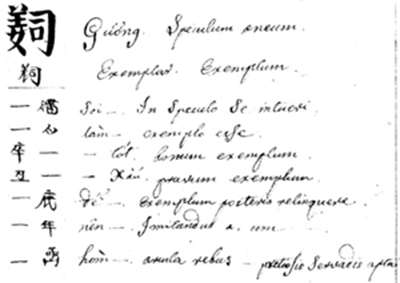 Gương. Speculum æneum.
Exemplar. Exemplum.
一 Soi —. In Speculo se intueri.
一 làm —. exemplo esse.
卒 一 — tốt. bonum exemplum.
丑 一 — Xấu. pravum exemplum.
一 底 để —. exemplum posteris relinquere.
一 年 nên —. Imitandus a. um.
一 hòm —. arcula rebus — pretiosis servandis apta